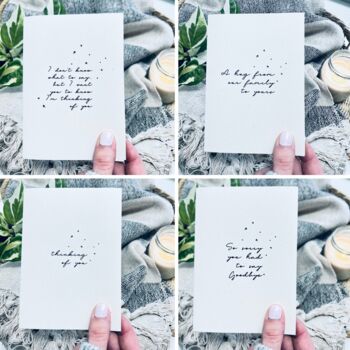 I don't know
what to say,
but I want
you to know
I'm thinking
of you
A hug from
our family
to yours
thinking
of you
So sorry
you had
to say
Goodbye